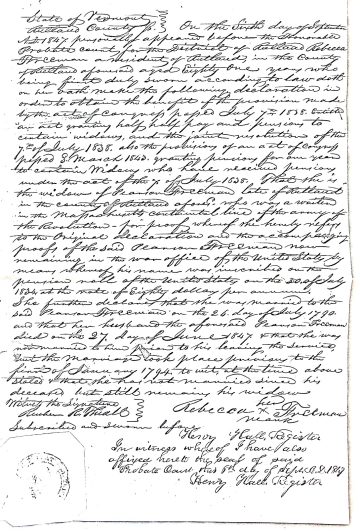 State of Vermont
Rutland County
On the Sixth day of
A.D. 1847 personally appeared before the Honorable
Probate Court for the District of Rutland Rebecca
Freeman a resident of Rutland, in the County
of Rutland aforesaid aged Eighty One years who
being first duly sworn according to law doth
on her oath make the following declaration in
order to obtain the benefit of the provision made
by the act of Congress passed July 7th 1838. Entitled
an act granting half pay and pensions to
certain widows, and the joint resolution of the
7th of July 1838. also the provision of an act of Congress
passed 3 March 1843. granting pensions for one year
to certain Widows who have received pensions
under the act of the 7th of July 1838. That she is
the widow of Pearson Freeman late of Rutland
in the county of Rutland who was a waiter
in the Massachusetts continental line of the army of
the Revolution. For proof whereof she hereby refers
to the Original Declaration and the accompanying
proof of the said Pearson Freeman now
remaining in the war office of the United States, by
means whereof his name was inscribed on the
pension roll of the United States on the of July
at the rate of Eighty dollars per annum
She further declares that she was married to the
said Pearson Freeman on the 26 day of July 1790.
and that her husband the aforesaid Pearson Freeman
died on the 27 day of June 1847 & that she was
not married to him prior to his leaving the service,
but the marriage took place previous to the
first of January 1794. to wit, at the time above
stated & that she has not married since his
decease but still remains his widow
Witness the Signature
Reuben R. Thrall
her
Rebecca X Freeman
mark
Subscribed and sworn before
Henry Hall, Register
In witness whereof I have also
affixed hereto the seal of said
Probate Court, this 8th day of Sept. A.D. 1847
Henry Hall Register